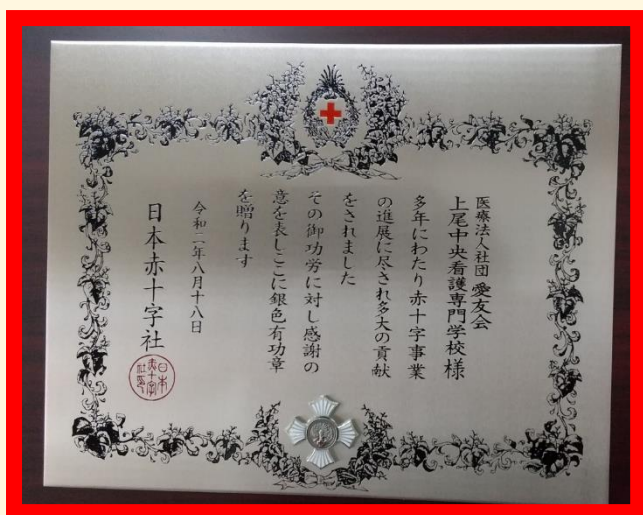 医療法人社団 愛友会
上尾中央看護専門学校様
多年にわたり赤十字事業
の進展に尽され多大の貢献
をされました
その御功労に対し感謝の
意を表しここに銀色有功章
を贈ります
令和二年八月十八日
日本赤十字社
日本
赤十字
社印